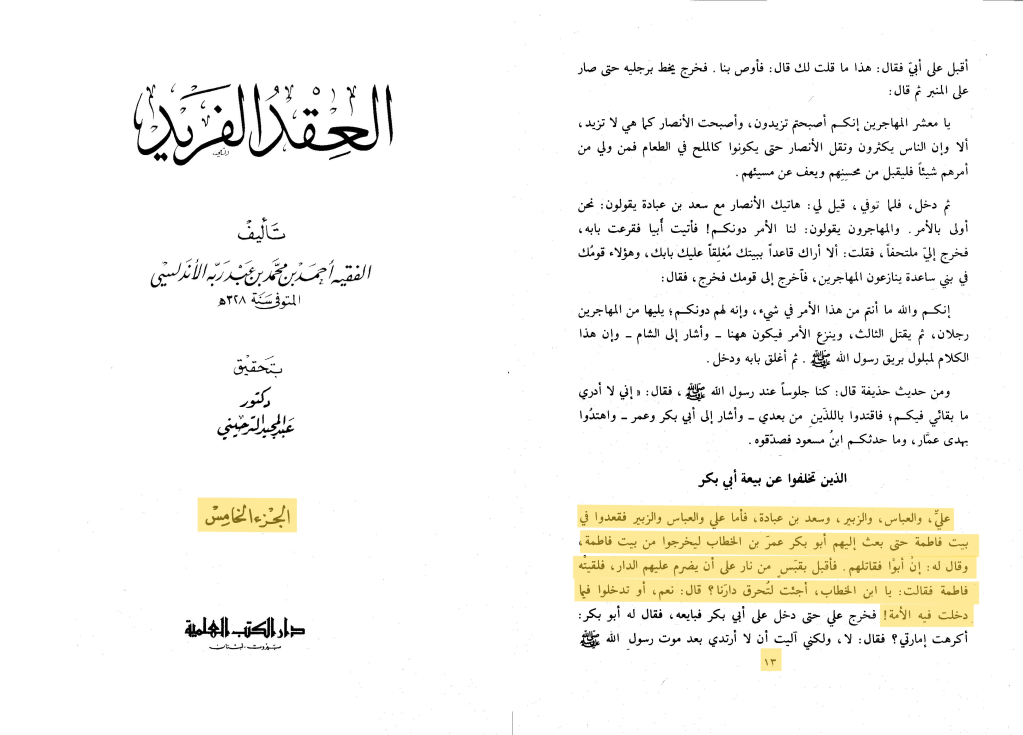 العقد الفريد
تأليف
الفقيه أحمد بن محمد بن عبد ربه الأندلسي
المتوفى سنة ٣٢٨هـ
بتحقيق
دكتور
عبد المجيد الترحيني
الجزء الخامس
دار الكتب العلمية
بيروت - لبنان
أقبل على أبيّ فقال: هذا ما قلت لك قال: فأوص بنا. فخرج يخط برجليه حتى صار
على المنبر ثم قال:
يا معشر المهاجرين إنكم أصبحتم تزيدون، وأصبحت الأنصار كما هي لا تزيد،
ألا وإن الناس يكثرون وتقل الأنصار حتى يكونوا كالملح في الطعام فمن ولي من
أمرهم شيئاً فليقبل من محسنِهم ويعف عن مسيئهم.
ثم دخل، فلما توفي، قيل لي: هاتيك الأنصار مع سعد بن عبادة يقولون: نحن
أولى بالأمر. والمهاجرون يقولون: لنا الأمر دونكم! فأتيت أُبيا فقرعت بابه،
فخرج إليّ ملتحفاً، فقلت: ألا أراك قاعداً ببيتك مُغلِقاً عليك بابك، وهؤلاء قومُك
في بني ساعدة ينازعون المهاجرين، فآخرج إلى قومك فخرج، فقال:
إنكم والله ما أنتم من هذا الأمر في شيء، وإنه لهم دونكم؛ يليها من المهاجرين
رجلان، ثم يقتل الثالث، وينزع الأمر فيكون ههنا - وأشار إلى الشام - وإن هذا
الكلام لمبلول بريق رسول الله ﷺ. ثم أغلق بابه ودخل.
ومن حديث حذيفة قال: كنا جلوساً عند رسول الله ﷺ، فقال: «إني لا أدري
ما بقائي فيكم؛ فاقتدوا باللذَين من بعدي - وأشار إلى أبي بكر وعمر - واهتدُوا
بهدى عمَّار، وما حدثكم ابنُ مسعود فصدّقوه.
الذين تخلفوا عن بيعة أبي بكر
عليّ، والعباس، والزبير، وسعد بن عبادة، فأما علي والعباس والزبير فقعدوا في
بيت فاطمة حتى بعث إليهم أبو بكر عمرَ بن الخطاب ليخرجوا من بيت فاطمة،
وقال له: إنْ أبوْا فقاتلهم. فأقبل بقَبَسٍ من نار على أن يضرم عليهم الدار، فلقيتْه
فاطمة فقالت: يا ابن الخطاب، أجئت لتُحرق دارَنا؟ قال: نعم، أو تدخلوا فيما
دخلت فيه الأمة! فخرج علي حتى دخل على أبي بكر فبايعه، فقال له أبو بكر:
أكرهت إمارتي؟ فقال: لا، ولكني آليت أن لا أرتدي بعد موت رسول الله ﷺ
١٣